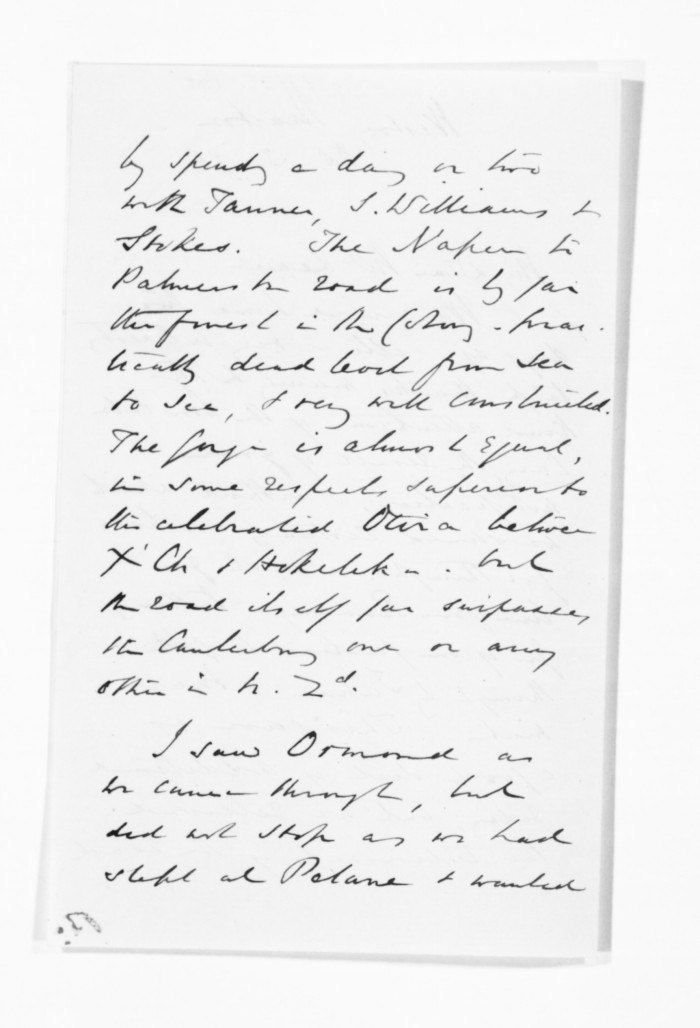 by spending a day or two
with Tanner, S. Williams &
Stokes. The Napier to
Palmerston road is by far
the finest in the Colony - prac-
tically dead level from sea
to sea, & very well constructed.
The Gorge is almost equal,
in some respects superior to
the celebrated Otira between
X' Ch & Hokitika - but
the road itself far surpasses
the Canterbury one or any
other in N. Zd.
I saw Ormond as
we came through, but
did not stop as we had
slept at Petane & wanted